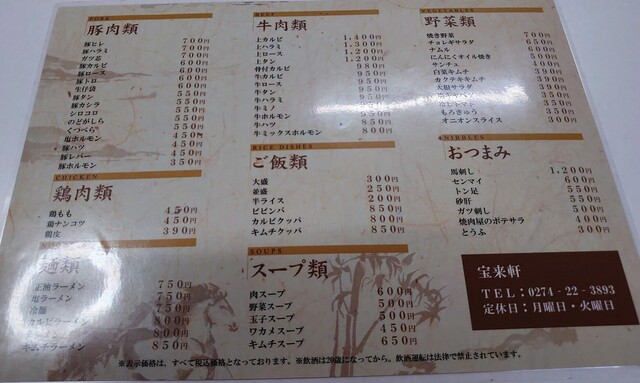 PORK
豚肉類
豚ヒレ 700円
豚ハラミ 700円
ガツ芯 700円
豚カルビ 600円
豚ロース 600円
豚トロ 600円
生仔袋 600円
豚タン 550円
豚カシラ 550円
シロコロ 550円
のどがしら 550円
くつべら 550円
塩ホルモン 450円
豚ハツ 450円
豚レバー 450円
豚ホルモン 350円
CHICKEN
鶏肉類
鶏もも 450円
鶏ナンコツ 450円
鶏皮 390円
麺類
正油ラーメン 750円
塩ラーメン 750円
冷麺
カルビラーメン
キムチラーメン 850円
BEEF
牛肉類
上カルビ 1,400円
上ハラミ 1,300円
上ロース 1,200円
上タン 1,200円
骨付カルビ 980円
牛カルビ 950円
牛ロース 950円
牛タン 950円
牛ハラミ 950円
牛ミノ 950円
牛ホルモン 850円
牛ハツ 850円
牛ミックスホルモン 800円
RICE DISHES
ご飯類
大盛 300円
並盛 250円
半ライス 200円
ビビンバ 800円
カルビクッパ 800円
キムチクッパ 800円
SOUPS
スープ類
肉スープ 600円
野菜スープ 500円
玉子スープ 500円
ワカメスープ 450円
キムチスープ 650円
VEGETABLES
野菜類
焼き野菜 700円
チョレギサラダ 650円
ナムル 600円
にんにくオイル焼き 500円
サンチュ 450円
白菜キムチ 390円
カクテキキムチ 390円
大根サラダ 390円
もろきゅう 350円
オニオンスライス 300円
NIBBLES
おつまみ
馬刺し 1,200円
センマイ 600円
トン足 550円
砂肝 550円
ガツ刺し 500円
焼肉屋のポテサラ 400円
とうふ 300円
宝来軒
TEL:0274-22-3893
定休日:月曜日・火曜日
※表示価格は、すべて税込価格となっております。※飲酒は20歳になってから。飲酒運転は法律で禁止されています。